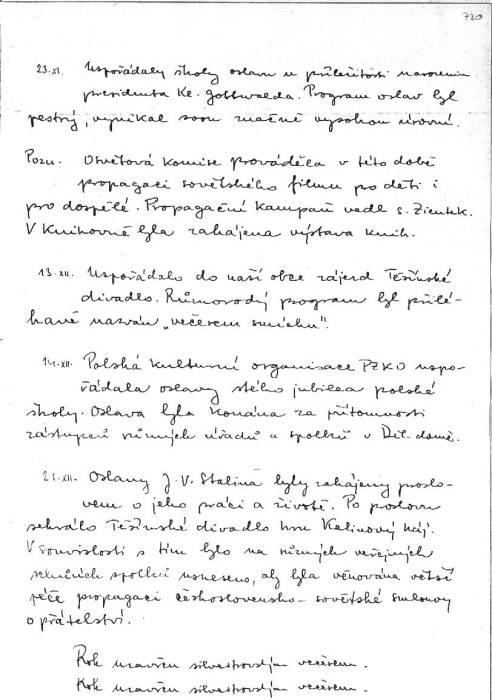 720
23.XI. Uspořádaly školy oslavu u příležitosti narozenin
presidenta Kl. Gottwalda. Program oslav byl
pestrý, vynikal svou značně vysokou úrovní.
Pozn. Osvětová komise prováděla v této době
propagaci sovětského filmu pro děti i
pro dospělé. Propagační kampaň vedl s. Zientek.
V knihovně byla zahájena výstava knih.
13.XII. Uspořádalo do naší obce zájezd Těšínské
divadlo. Různorodý program byl přilé-
havě nazván „večerem smíchu".
14.XII. Polská kulturní organisace PZKO uspo-
řádala oslavy stého jubilea polské
školy. Oslava byla konána za přítomnosti
zástupců různých úřadů a spolků v Děl. domě.
21.XII. Oslavy J. V. Stalina byly zahájeny proslo-
vem o jeho práci a životě. Po proslovu
sehrálo Těšínské divadlo hru Kalinový háj.
V souvislosti s tím bylo na různých veřejných
schůzích spolků usneseno, aby byla věnována větší
péče propagaci československo-sovětské smlouvy
o přátelství.
Rok uzavřen silvestrovským večerem.
Rok uzavřen silvestrovským večerem.